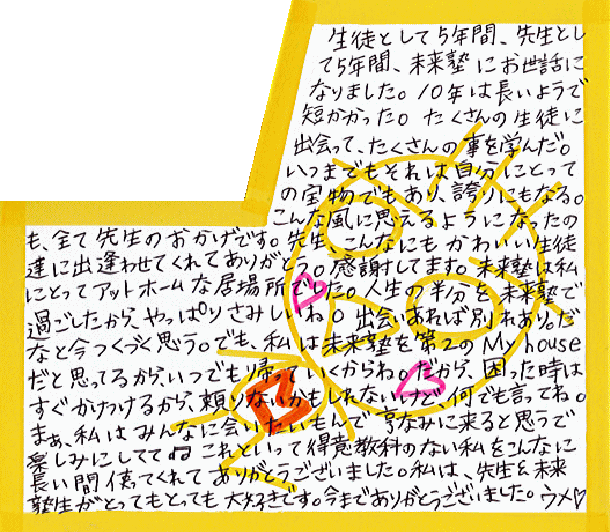 生徒として5年間、先生とし
て5年間、未来塾にお世話に
なりました。10年は長いようで
短かかった。たくさんの生徒に
出会って、たくさんの事を学んだ。
いつまでもそれは自分にとって
の宝物でもあり、誇りにもなる。
こんな風に思えるようになったの
も、全て先生のおかげです。先生、こんなにもかわいい生徒
達に出逢わせてくれてありがとう。感謝してます。未来塾は私
にとってアットホームな居場所でした。人生の半分を未来塾で
過ごしたから、やっぱりさみしいね。出会いあれば別れあり。だ
なと今つくづく思う。でも、私は未来塾を第2のMy house
だと思ってるから、いつでも帰っていくからね。だから、困った時は
すぐかけつけるから、頼りないかもしれないけど、何でも言ってね。
まぁ、私はみんなに会いたいもんで 亨なみに来ると思うで
楽しみにしててね これといって得意教科のない私をこんなに
長い間 てくれてありがとうございました。私は、先生&未来
塾生がとってもとっても大好きです。今までありがとうございました。ウメ♡